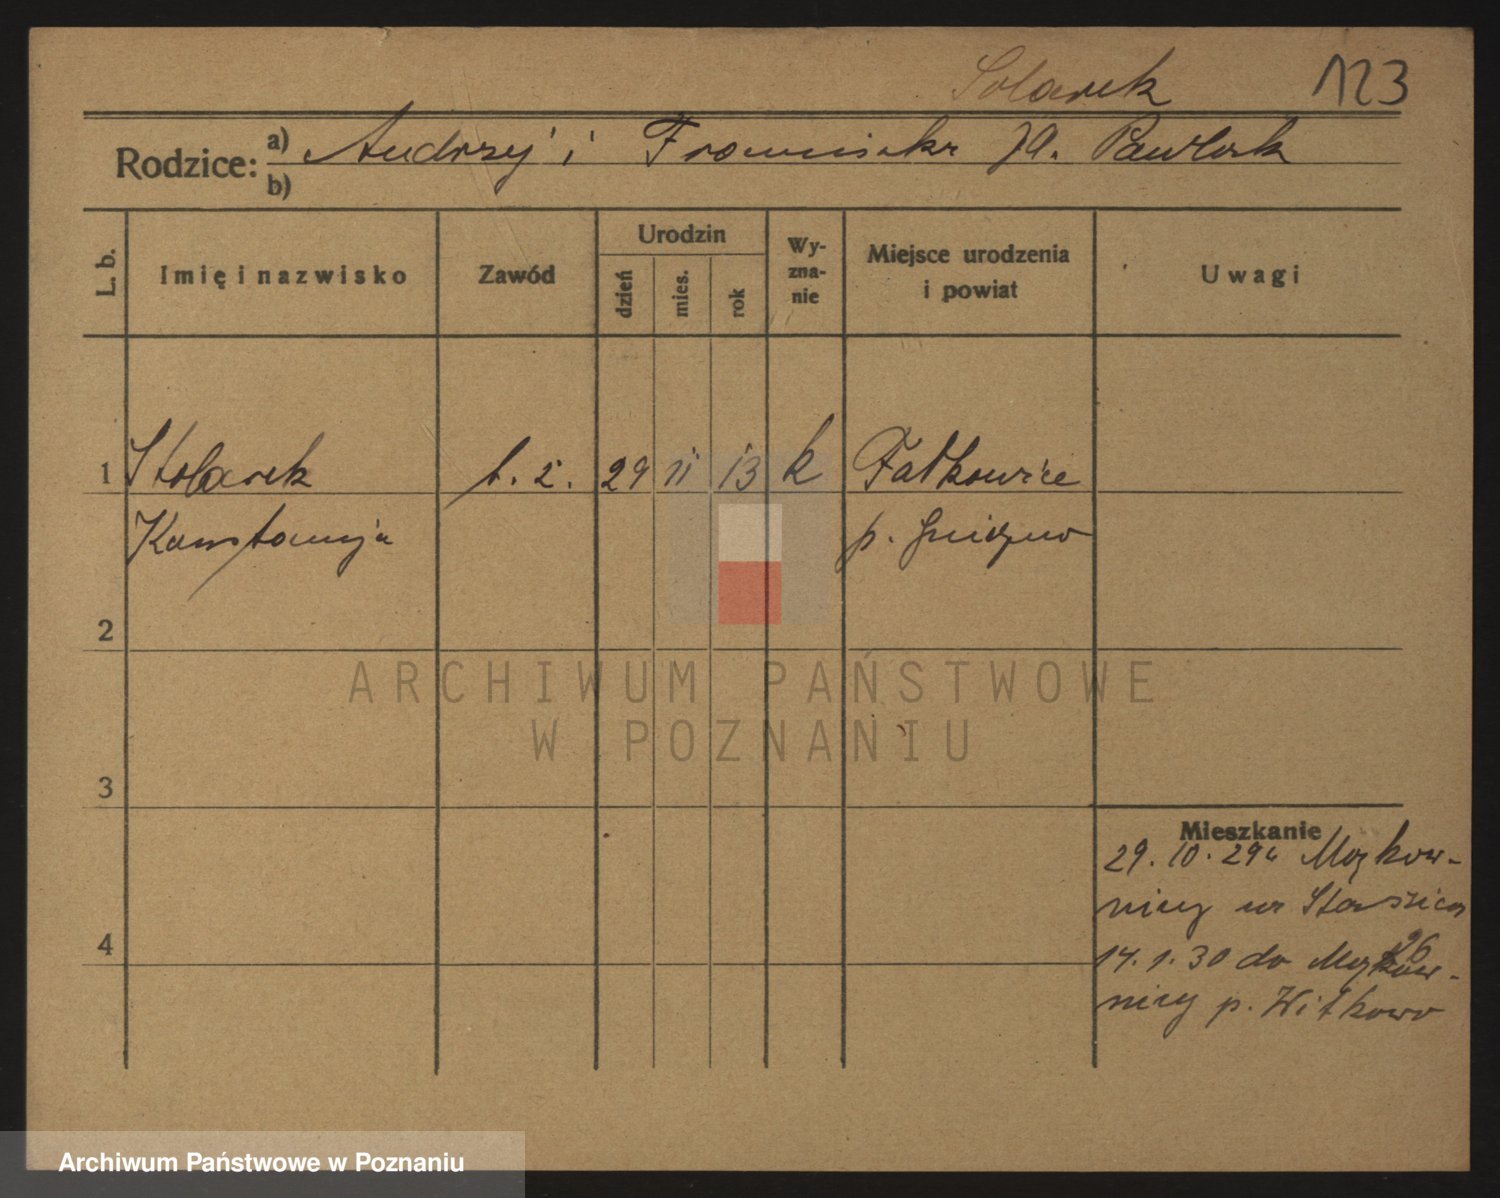 Solarek 123
Rodzice: a) Andrzej i Franciszka zd. Pawlak
b)
L. b. Imię i nazwisko Zawód Urodzin dzień mies. rok Wyznanie Miejsce urodzenia i powiat Uwagi
1 Stolarek 29 11 13 k Fałkowice
Konstancja p. Gniezno
2
ARCHIWUM PAŃSTWOWE
W POZNANIU
3
Mieszkanie
29. 10. 29
nicy Staszica
4 26
14. 1. 30 do
nicy p. Witkowo
Archiwum Państwowe w Poznaniu